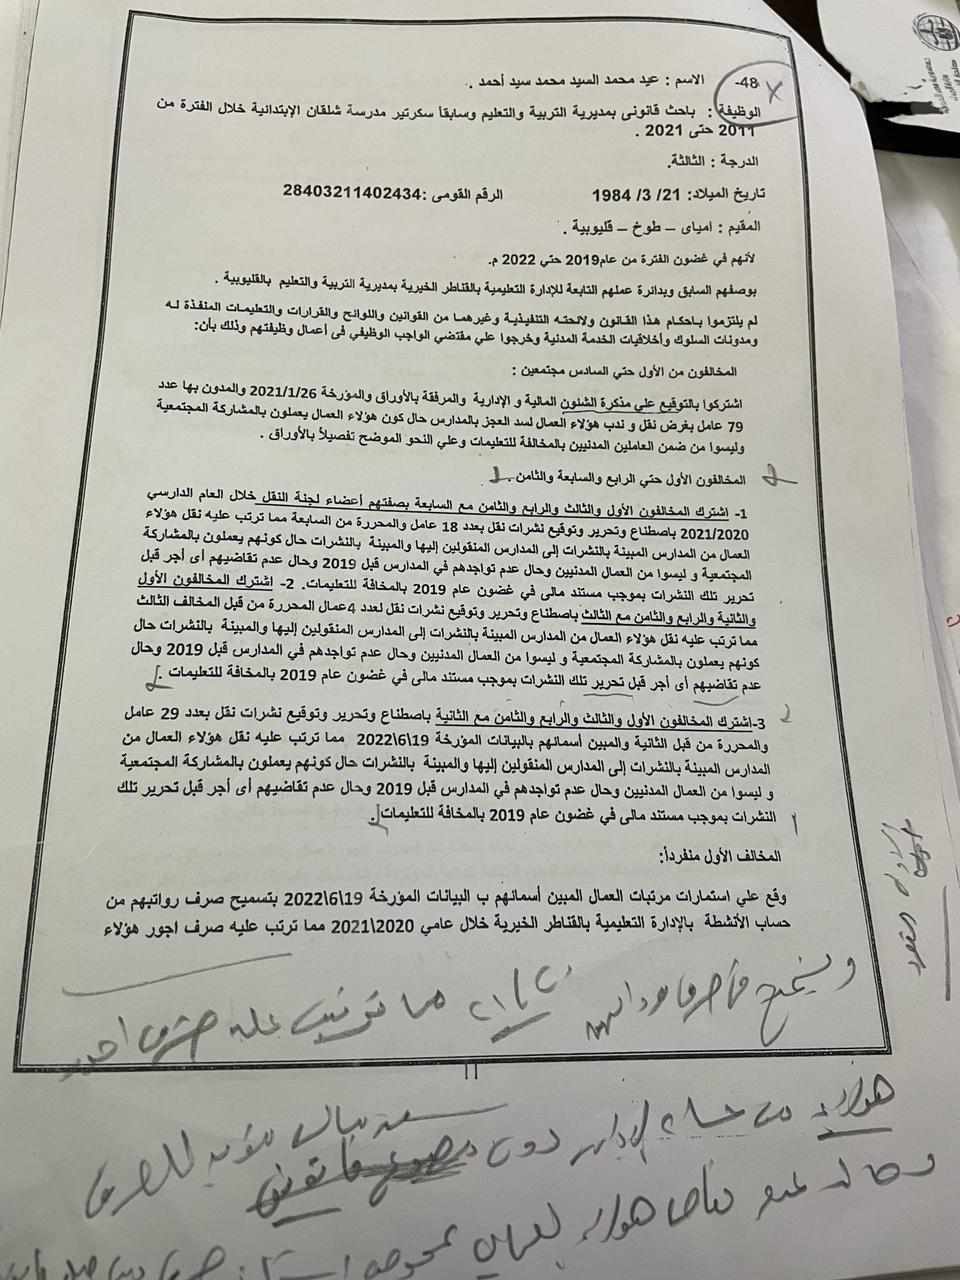 48- الاسم : عيد محمد السيد محمد سيد أحمد .
الوظيفة : باحث قانونى بمديرية التربية والتعليم وسابقا سكرتير مدرسة شلقان الإبتدائية خلال الفترة من
2011 حتى 2021 .
الدرجة : الثالثة.
تاريخ الميلاد: 21/ 3/ 1984 الرقم القومى :28403211402434
المقيم : امياى – طوخ – قليوبية .
لأنهم في غضون الفترة من عام2019 حتي 2022 م.
بوصفهم السابق وبدائرة عملهم التابعة للإدارة التعليمية بالقناطر الخيرية بمديرية التربية والتعليم بالقليوبية .
لم يلتزموا بـاحكام هذا القـانون ولانحتـه التنفيذيـة وغيرهمـا من القوانين واللوائح والقرارات والتعليمات المنفذة لـه
ومدونات السلوك وأخلاقيات الخدمة المدنية وخرجوا علي مقتضي الواجب الوظيفي فى أعمال وظيفتهم وذلك بأن:
المخالفون من الأول حتي السادس مجتمعين :
اشتركوا بالتوقيع علي مذكرة الشئون المالية و الإدارية والمرفقة بالأوراق والمؤرخة 2021/1/26 والمدون بها عدد
79 عامل بغرض نقل و ندب هؤلاء العمال لسد العجز بالمدارس حال كون هؤلاء العمال يعملون بالمشاركة المجتمعية
وليسوا من ضمن العاملين المدنيين بالمخالفة للتعليمات وعلي النحو الموضح تفصيلاً بالأوراق .
المخالفون الأول حتي الرابع والسابعة والثامن .
1- اشترك المخالفون الأول والثالث والرابع والثامن مع السابعة بصفتهم أعضاء لجنة النقل خلال العام الدارسي
2021/2020 باصطناع وتحرير وتوقيع نشرات نقل بعدد 18 عامل والمحررة من السابعة مما ترتب عليه نقل هؤلاء
العمال من المدارس المبينة بالنشرات إلى المدارس المنقولين إليها والمبينة بالنشرات حال كونهم يعملون بالمشاركة
المجتمعية و ليسوا من العمال المدنيين وحال عدم تواجدهم في المدارس قبل 2019 وحال عدم تقاضيهم أى أجر قبل
تحرير تلك النشرات بموجب مستند مالى في غضون عام 2019 بالمخافة للتعليمات. 2- اشترك المخالفون الأول
والثانية والرابع والثامن مع الثالث باصطناع وتحرير وتوقيع نشرات نقل لعدد 4عمال المحررة من قبل المخالف الثالث
مما ترتب عليه نقل هؤلاء العمال من المدارس المبينة بالنشرات إلى المدارس المنقولين إليها والمبينة بالنشرات حال
كونهم يعملون بالمشاركة المجتمعية و ليسوا من العمال المدنيين وحال عدم تواجدهم في المدارس قبل 2019 وحال
عدم تقاضيهم أى أجر قبل تحرير تلك النشرات بموجب مستند مالى في غضون عام 2019 بالمخافة للتعليمات .
3-اشترك المخالفون الأول والثالث والرابع والثامن مع الثانية باصطناع وتحرير وتوقيع نشرات نقل بعدد 29 عامل
والمحررة من قبل الثانية والمبين أسمائهم بالبيانات المؤرخة 19\6\2022 مما ترتب عليه نقل هؤلاء العمال من
المدارس المبينة بالنشرات إلى المدارس المنقولين إليها والمبينة بالنشرات حال كونهم يعملون بالمشاركة المجتمعية
و ليسوا من العمال المدنيين وحال عدم تواجدهم في المدارس قبل 2019 وحال عدم تقاضيهم أى أجر قبل تحرير تلك
النشرات بموجب مستند مالى في غضون عام 2019 بالمخافة للتعليمات.
المخالف الأول منفرداً:
وقع علي استمارات مرتبات العمال المبين أسمائهم ب البيانات المؤرخة 19\6\2022 بتسميح صرف رواتبهم من
حساب الأنشطة بالإدارة التعليمية بالقناطر الخيرية خلال عامي 2020\2021 مما ترتب عليه صرف اجور هؤلاء
مما ترتب عليه صرف اجور
هؤلاء من حساب الإدارة دون
سند مالى مؤيد للصرف